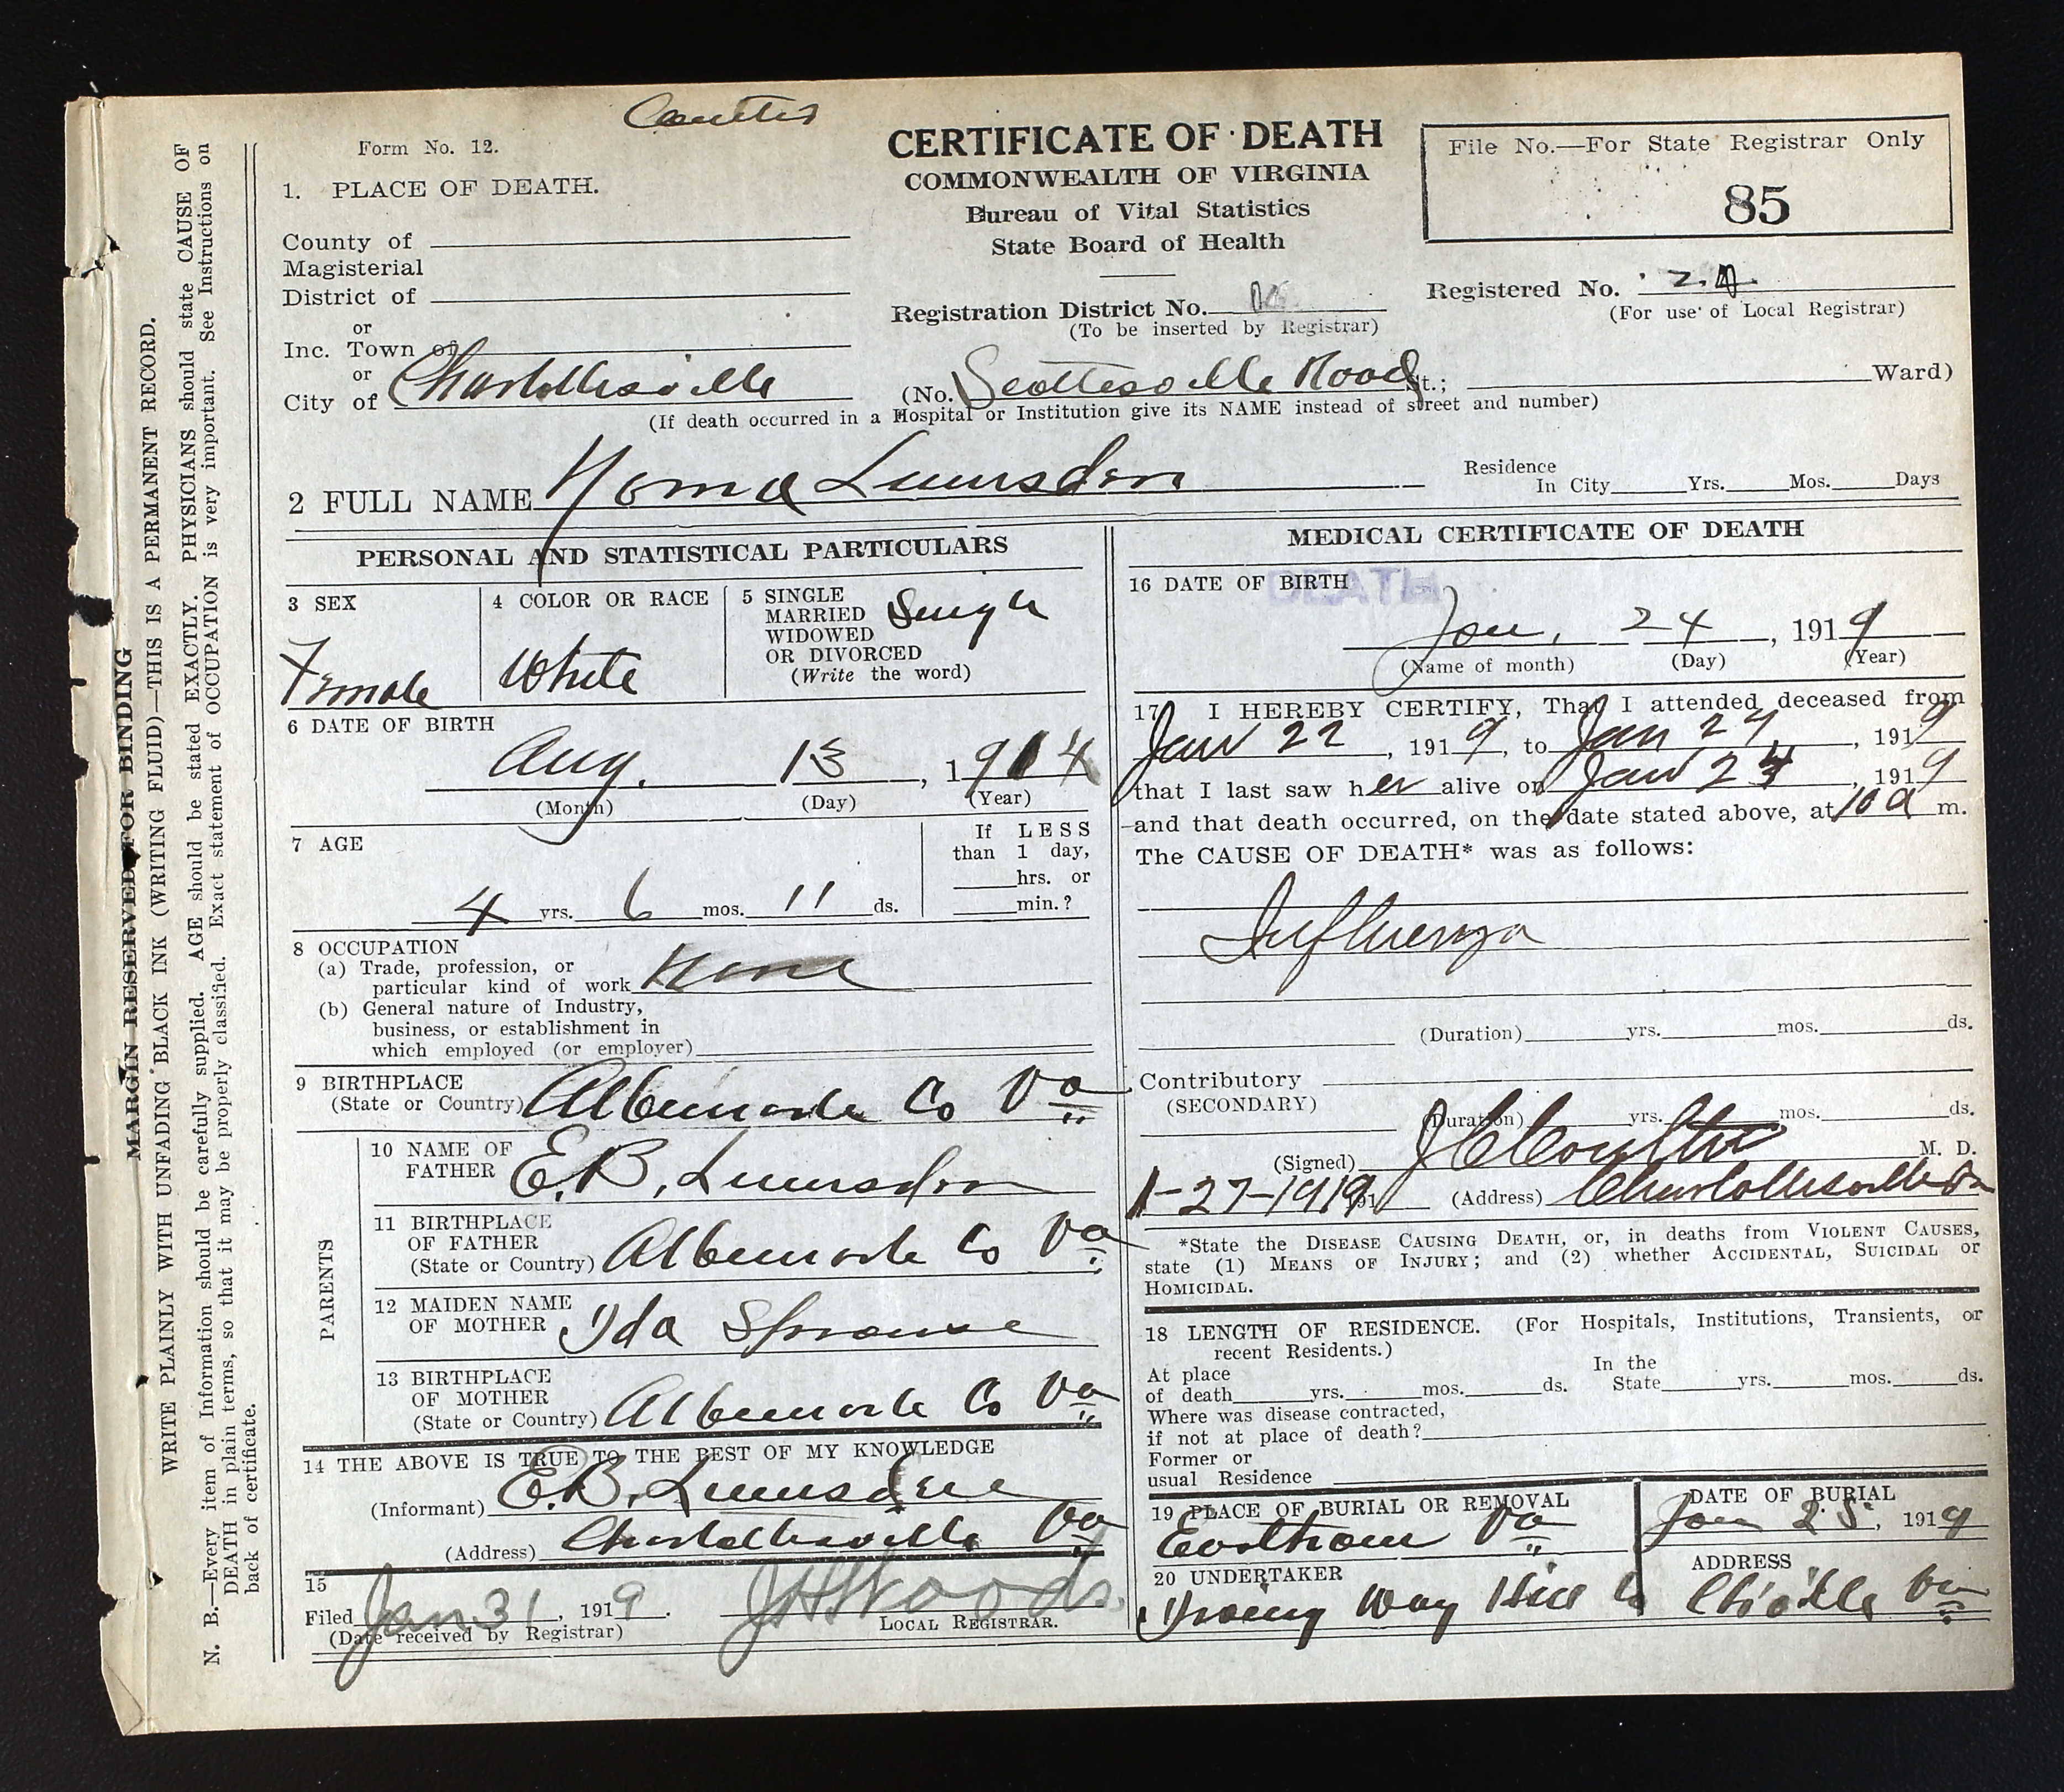 Form No. 12.
CERTIFICATE OF DEATH
COMMONWEALTH OF VIRGINIA
Bureau of Vital Statistics
State Board of Health
File No.—For State Registrar Only
85
1. PLACE OF DEATH.
County of
Magisterial
District of
or
Inc. Town of
or
City of Charlottesville
Registration District No.
(To be inserted by Registrar)
Registered No.
(For use of Local Registrar)
(No. Scottesville Road St.; Ward)
(If death occurred in a Hospital or Institution give its NAME instead of street and number)
2 FULL NAME Lumsden
Residence
In City Yrs. Mos. Days
PERSONAL AND STATISTICAL PARTICULARS
3 SEX
Female
4 COLOR OR RACE
White
5 SINGLE
MARRIED
WIDOWED
OR DIVORCED
(Write the word)
Single
6 DATE OF BIRTH
Aug. 13, 1914
(Month) (Day) (Year)
7 AGE
4 yrs. 6 mos. 11 ds.
If LESS
than 1 day,
hrs. or
min.?
8 OCCUPATION
(a) Trade, profession, or
particular kind of work None
(b) General nature of Industry,
business, or establishment in
which employed (or employer)
9 BIRTHPLACE
(State or Country) Albemarle Co Va
PARENTS
10 NAME OF
FATHER E. B. Lumsden
11 BIRTHPLACE
OF FATHER
(State or Country) Albemarle Co Va
12 MAIDEN NAME
OF MOTHER Ida Sprouse
13 BIRTHPLACE
OF MOTHER
(State or Country) Albemarle Co Va
14 THE ABOVE IS TRUE TO THE BEST OF MY KNOWLEDGE
(Informant) E. B. Lumsden
(Address) Charlottesville Va
15
Filed Jan. 31, 1919.
(Date received by Registrar)
J H Woods
LOCAL REGISTRAR.
MEDICAL CERTIFICATE OF DEATH
16 DATE OF BIRTH
DEATH
Jan. 24, 1919
(Name of month) (Day) (Year)
17 I HEREBY CERTIFY, That I attended deceased from
Jan 22, 1919, to Jan 24, 1919
that I last saw her alive on Jan 24, 1919
and that death occurred, on the date stated above, at 10 a m.
The CAUSE OF DEATH* was as follows:
Influenza
(Duration) yrs. mos. ds.
Contributory
(SECONDARY)
(Duration) yrs. mos. ds.
(Signed) J C Coulter M. D.
1-27-1919 191 (Address) Charlottesville Va
*State the DISEASE CAUSING DEATH, or, in deaths from VIOLENT CAUSES,
state (1) MEANS OF INJURY; and (2) whether ACCIDENTAL, SUICIDAL or
HOMICIDAL.
18 LENGTH OF RESIDENCE. (For Hospitals, Institutions, Transients, or
recent Residents.)
At place
of death yrs. mos. ds.
In the
State yrs. mos. ds.
Where was disease contracted,
if not at place of death?
Former or
usual Residence
19 PLACE OF BURIAL OR REMOVAL
Eastham Va
DATE OF BURIAL
Jan 25, 1919
20 UNDERTAKER
Irving Way Hill Co
ADDRESS
Ch'ville Va
MARGIN RESERVED FOR BINDING
WRITE PLAINLY WITH UNFADING BLACK INK (WRITING FLUID)—THIS IS A PERMANENT RECORD.
N. B.—Every item of Information should be carefully supplied. AGE should be stated EXACTLY. PHYSICIANS should state CAUSE OF
DEATH in plain terms, so that it may be properly classified. Exact statement of OCCUPATION is very important. See Instructions on
back of certificate.